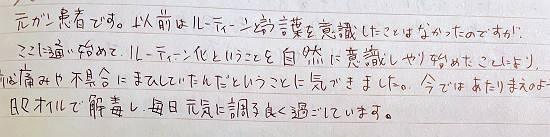 元ガン患者です。以前はルーティーンと言う言葉を意識したことはなかったのですが、
ここに通い始めて、ルーティーン化ということを自然に意識しやり始めたことにより、
痛みや不具合にまひしていたんだということに気づきました。今ではあたりまえのよ
オイルで解毒し、毎日元気に調子良く過ごしています。